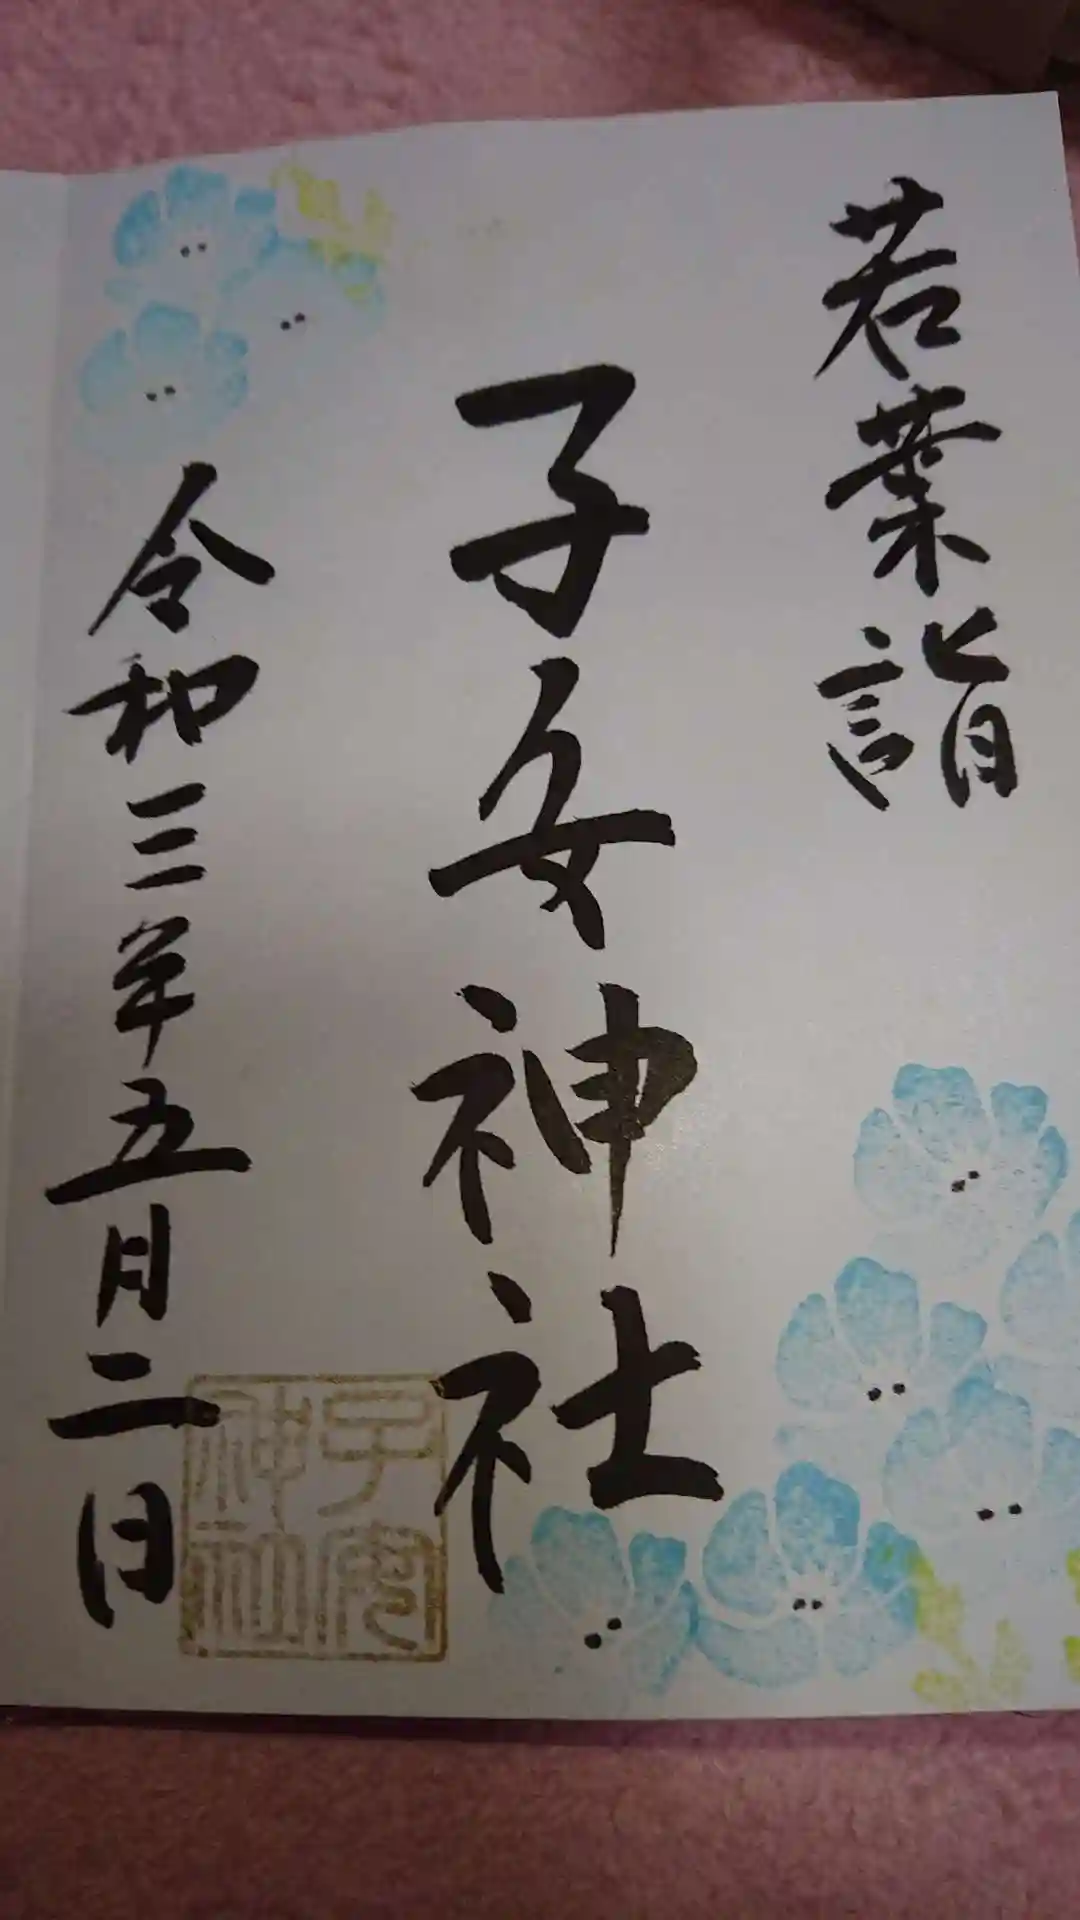 若葉詣
子安神社
令和三年五月二日
子安
神社